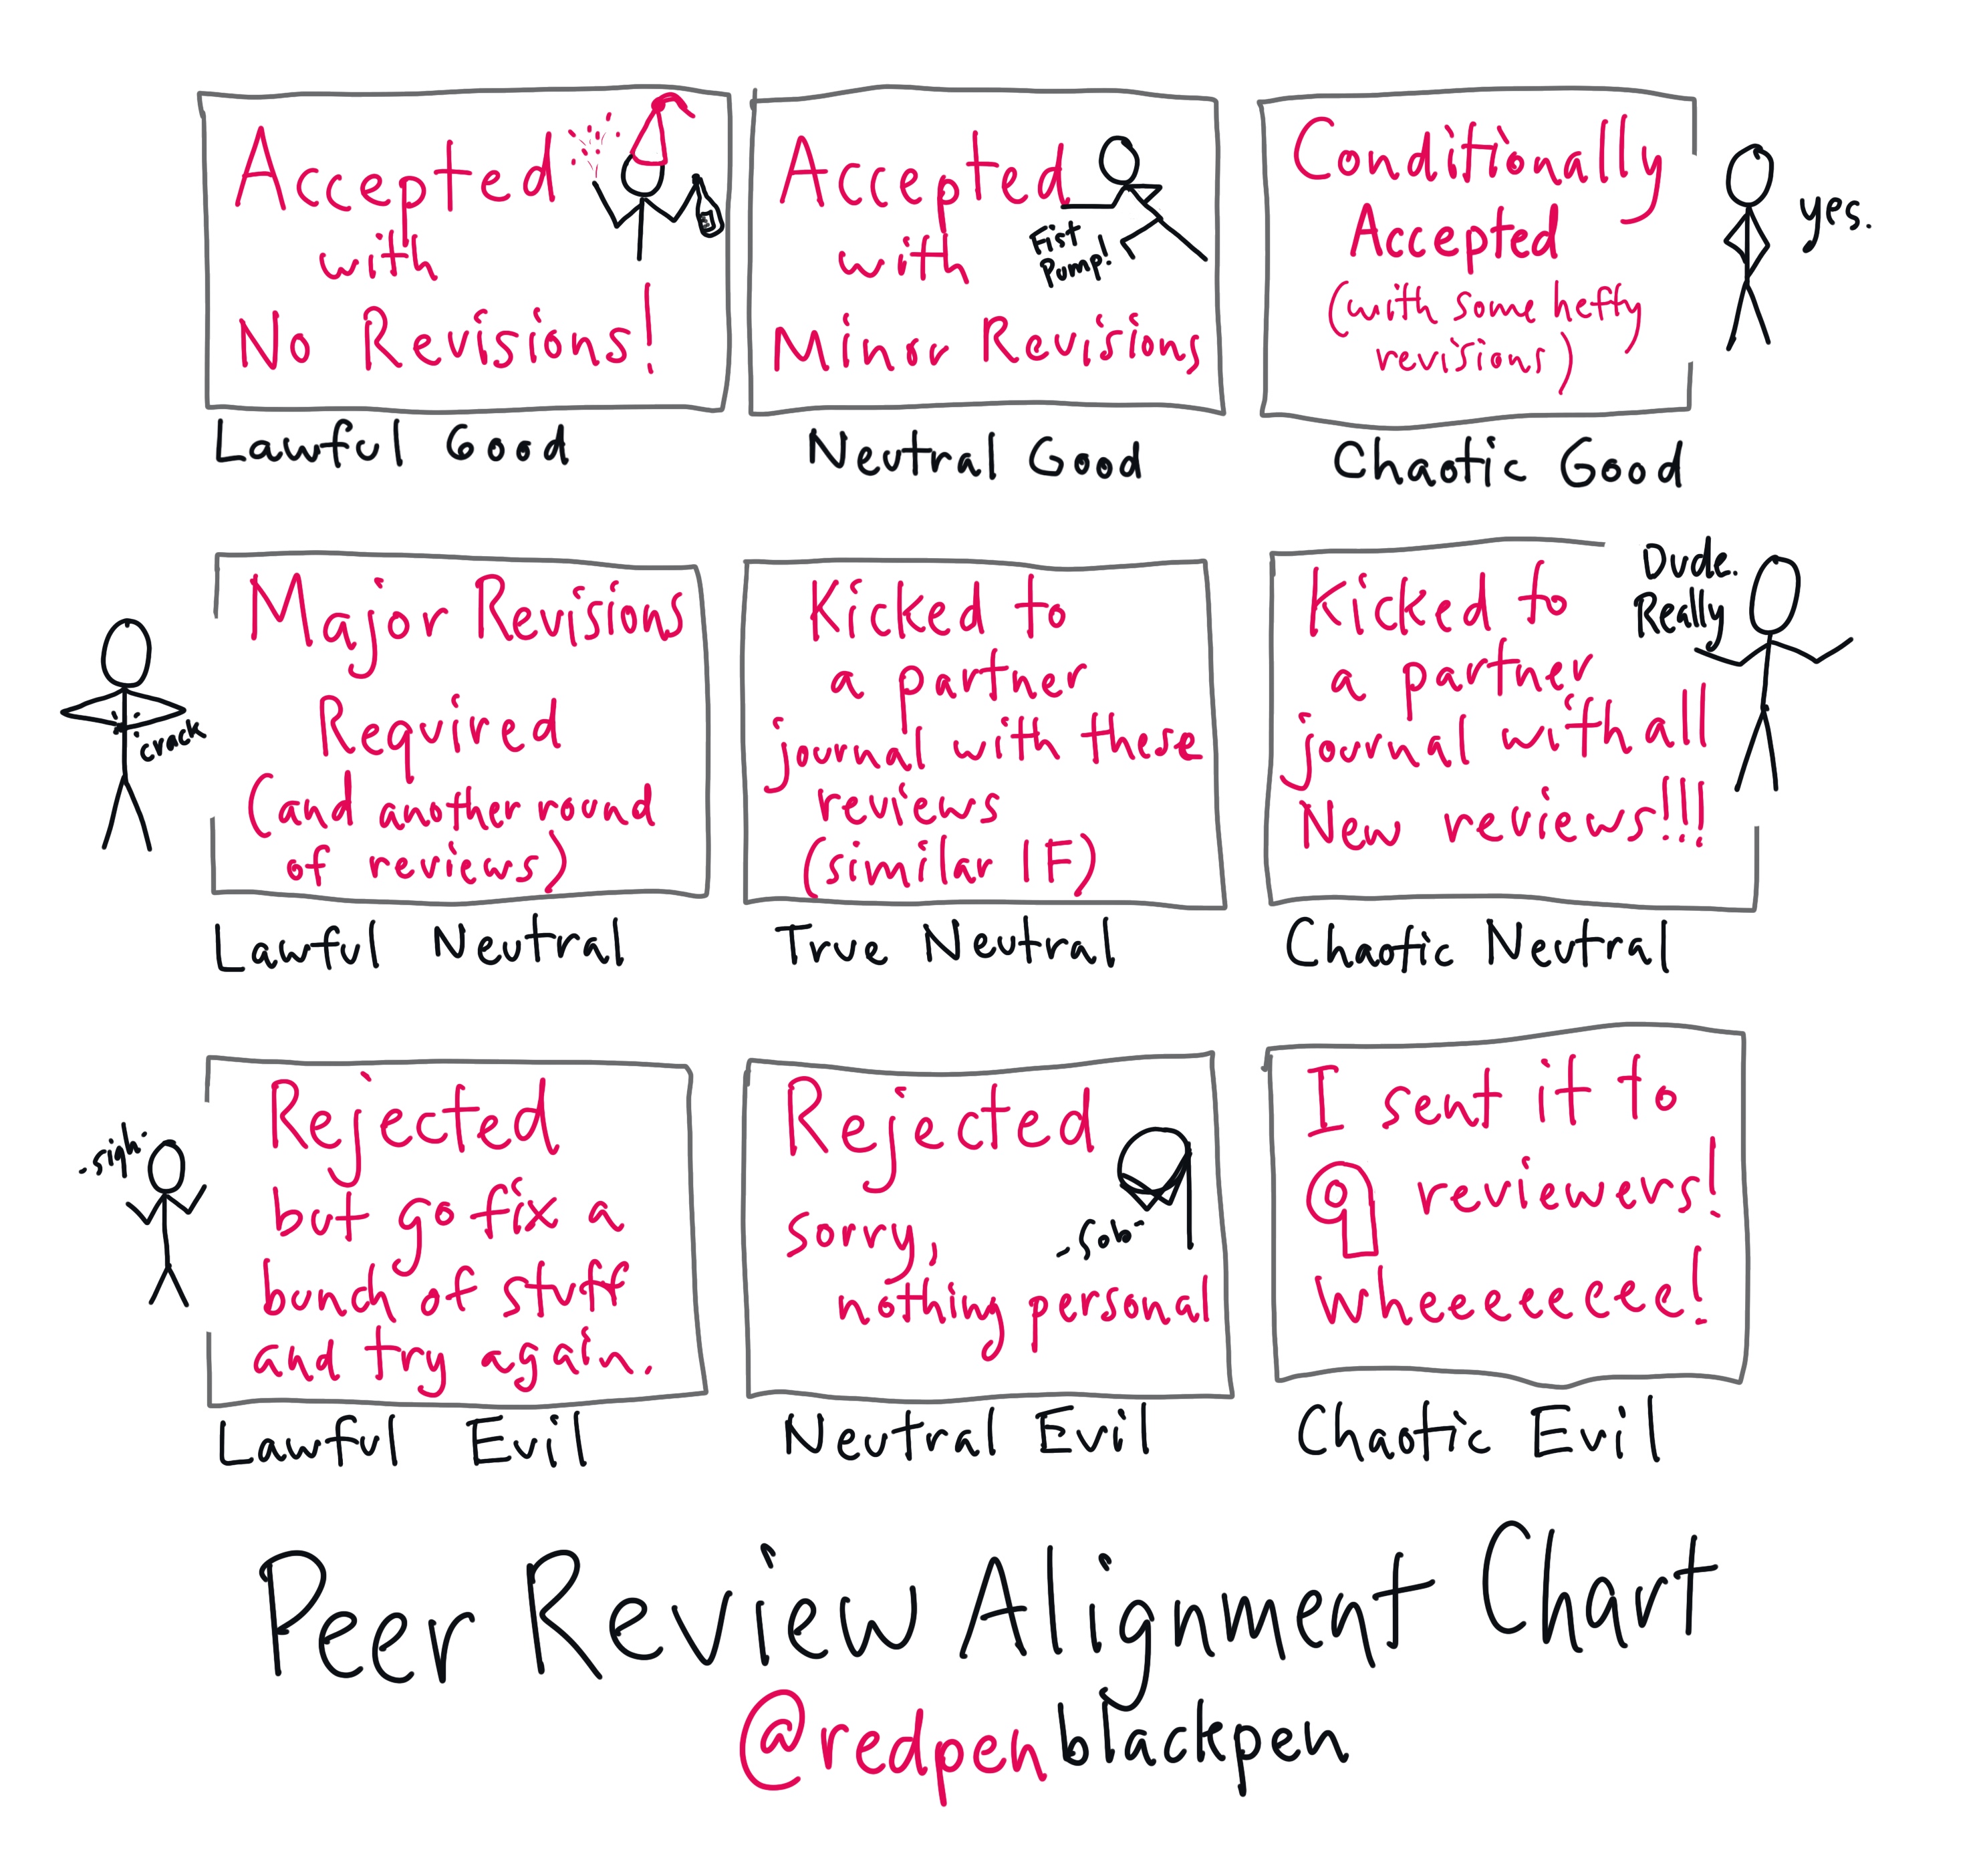 Accepted
with
No Revisions!
Lawful Good
Accepted
with
Fist
Pump!
Minor Revisions
Neutral Good
Conditionally
Accepted
(with some hefty
revisions)
yes.
Chaotic Good
Major Revisions
Required
(and another round
of reviews)
crack
Lawful Neutral
Kicked to
a partner
journal with these
reviews
(similar IF)
True Neutral
Kicked to
a partner
journal with all
New reviews!!!
Dude.
Really
Chaotic Neutral
-sigh-
Rejected
but go fix a
bunch of stuff
and try again.
Lawful Evil
Rejected
sorry,
nothing personal
-sob-
Neutral Evil
I sent it to
9 reviewers!
wheeeeeeeee!
Chaotic Evil
Peer Review Alignment Chart
@redpenblackpen